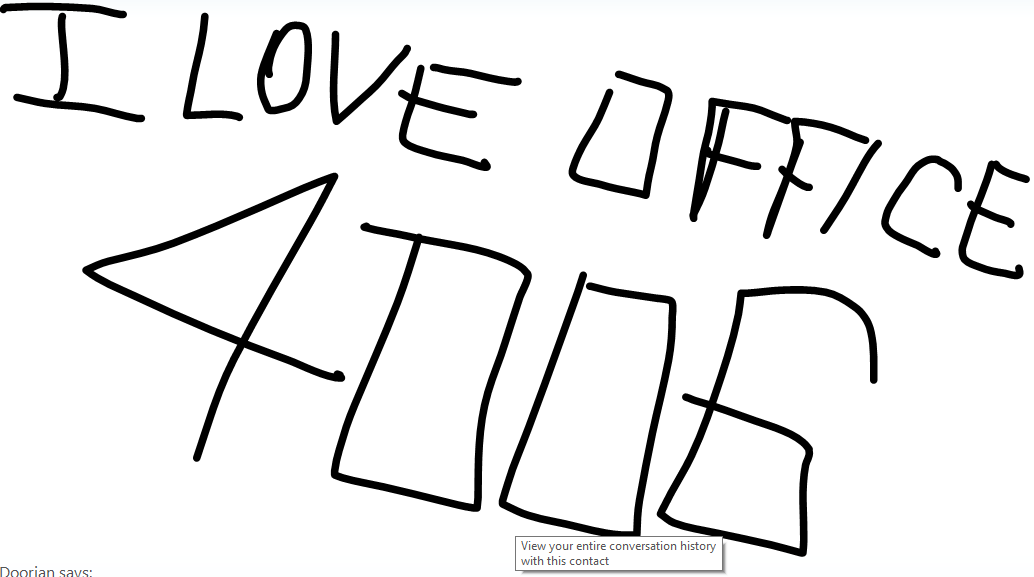 I LOVE OFFICE
4006
View your entire conversation history
with this contact
Doorian says: